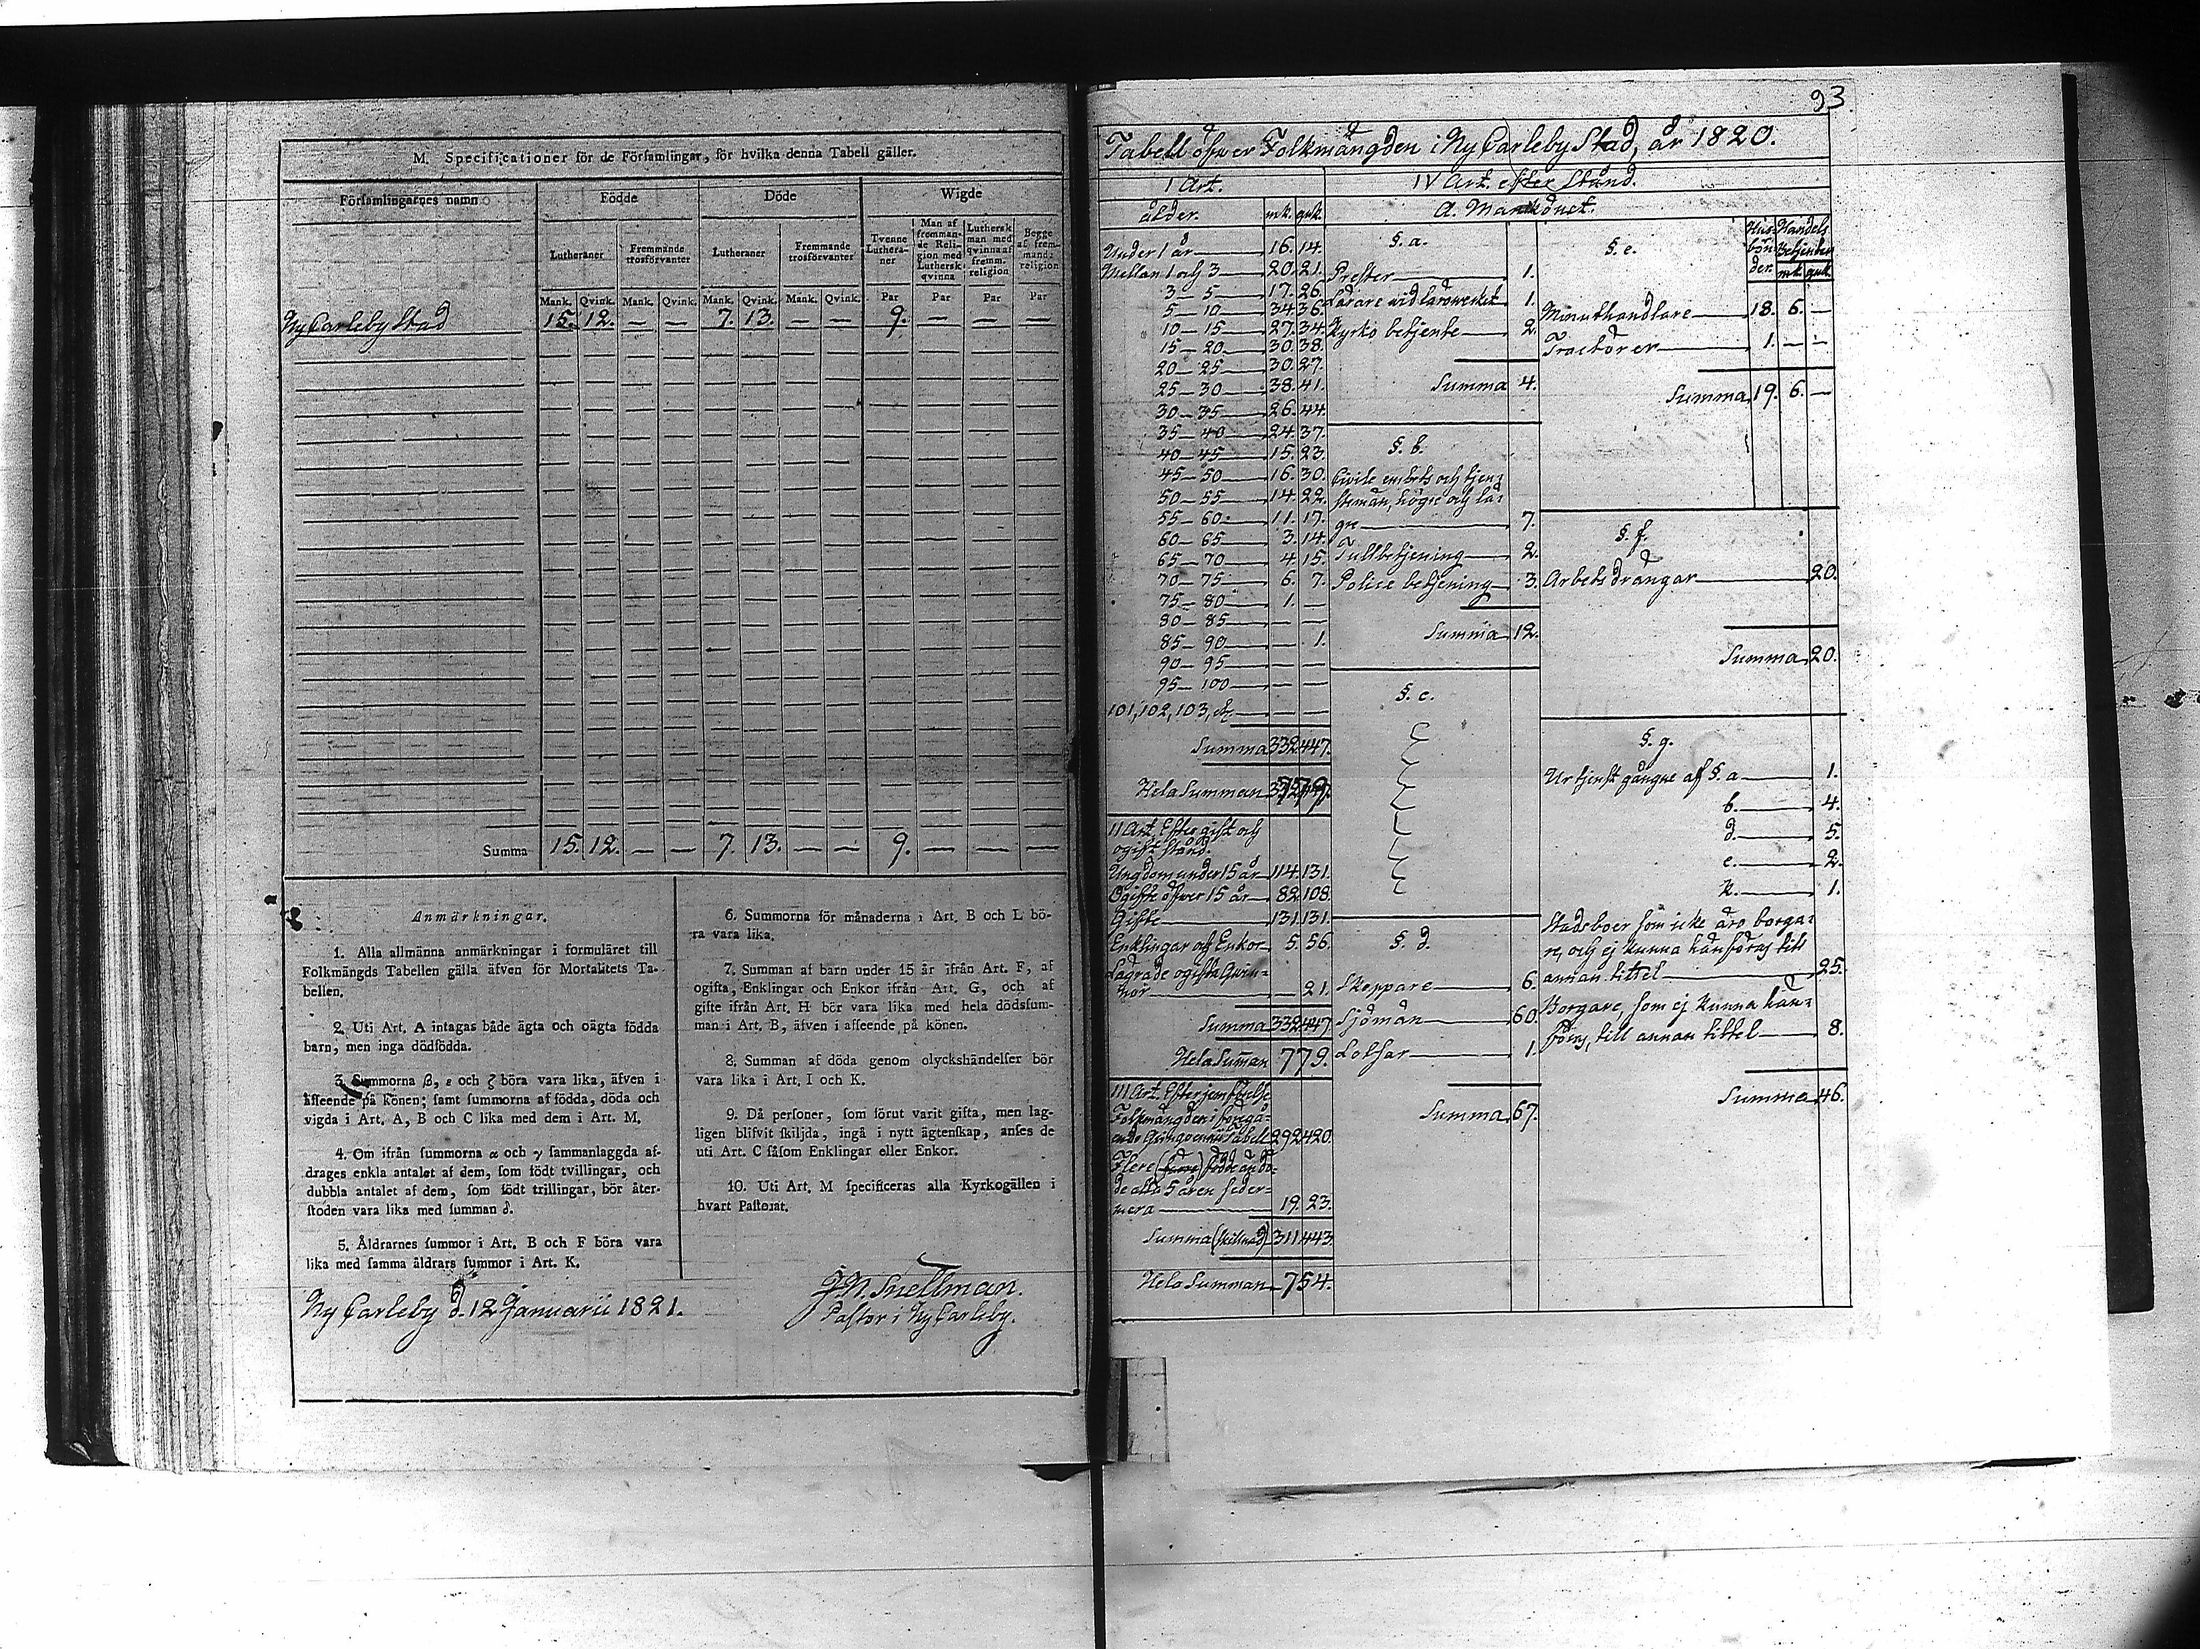 M. Specificationer för de Församlingar, för hvilka denna Tabell gäller.
Församlingarnes namn. Födde Döde Wigde
Lutheraner Fremmande trosförvanter Lutheraner Fremmande trosförvanter Tvenne Lutheraner Man af fremmande Religion med Luthersk qvinna Luthersk man med qvinna af fremm. religion Begge af fremmande religion
Mank. Qvink. Mank. Qvink. Mank. Qvink. Mank. Qvink. Par Par Par Par
Ny Carleby Stad 15. 12. — — 7. 13. — — 9. — — —
Summa 15. 12. — — 7. 13. — — 9. — — —
Anmärkningar.
1. Alla allmänna anmärkningar i formuläret till
Folkmängds Tabellen gälla äfven för Mortalitets Ta-
bellen.
2. Uti Art. A intagas både ägta och oägta födda
barn, men inga dödfödda.
3. Summorna β, ε och ζ böra vara lika, äfven i
afseende på könen; samt summorna af födda, döda och
vigda i Art. A, B och C lika med dem i Art. M.
4. Om ifrån summorna α och γ sammanlaggda af-
drages enkla antalet af dem, som födt tvillingar, och
dubbla antalet af dem, som födt trillingar, bör åter-
stoden vara lika med summan δ.
5. Åldrarnes summor i Art. B och F böra vara
lika med samma åldrars summor i Art. K.
6. Summorna för månaderna i Art. B och L bö-
ra vara lika.
7. Summan af barn under 15 år ifrån Art. F, af
ogifta, Enklingar och Enkor ifrån Art. G, och af
gifte ifrån Art. H bör vara lika med hela dödssum-
man i Art. B, äfven i afseende på könen.
8. Summan af döda genom olyckshändelser bör
vara lika i Art. I och K.
9. Då personer, som förut varit gifta, men lag-
ligen blifvit skiljda, ingå i nytt ägtenskap, anses de
uti Art. C såsom Enklingar eller Enkor.
10. Uti Art. M specificeras alla Kyrkogällen i
hvart Pastorat.
Ny Carleby d. 12 Januarii 1821.
J. N. Snellman.
Pastor i Ny Carleby.
93.
Tabell öfwer Folkmängden i Ny Carleby Stad, år 1820.
I Art.
ålder. mk. quk.
Under 1 år 16. 14.
Mellan 1 och 3 20. 21.
3 — 5 17. 26.
5 — 10 34. 36.
10 — 15 27. 34.
15 — 20 30. 38.
20 — 25 30. 27.
25 — 30 38. 41.
30 — 35 26. 44.
35 — 40 24. 37.
40 — 45 15. 23.
45 — 50 16. 30.
50 — 55 14. 22.
55 — 60 11. 17.
60 — 65 3. 14.
65 — 70 4. 15.
70 — 75 6. 7.
75 — 80 1. —
80 — 85 — —
85 — 90 — 1.
90 — 95 — —
95 — 100 — —
101, 102, 103, etc — —
Summa 332. 447.
Hela Summan 779.
II Art. Efter gift och
ogift stånd.
Ungdom under 15 år 114. 131.
Ogifte öfwer 15 år 82. 108.
Gifte 131. 131.
Enklingar och Enkor 5. 56.
Lägrade ogifta Qwin-
nor — 21.
Summa 332. 447.
Hela Summan 779.
III Art. Efter jemförelse
Folkmängden i föregå-
ende Quinquennii Tabell 292. 420.
Flere födde än dö-
de alla 5 åren seder-
mera 19. 23.
Summa (skillnad) 311. 443.
Hela Summan 754.
IV Art. efter Stånd.
A. Mankönet.
§. a.
Prester 1.
Lärare wid lärowerket 1.
Kyrko betjente 2.
Summa 4.
§. b.
Civile embets och tjen-
stemän, högre och läg-
re 7.
Tullbetjening 2.
Police betjening 3.
Summa 12.
§. c.
§. d.
Skeppare 6.
Sjömän 60.
Lotsar 1.
Summa 67.
§. e. Husbönder. Handels Betjenter mk. quk.
Minuthandlare 18. 6. —
Tracteurer 1. — —
Summa 19. 6. —
§. f.
Arbets drängar 20.
Summa 20.
§. g.
Ur tjenst gångne af §. a 1.
b. 4.
d. 5.
e. 2.
k. 1.
Stadsboer som icke äro borga-
re, och ej kunna hänföras till
annan tittel 25.
Borgare, som ej kunna hän-
föras, till annan tittel 8.
Summa 46.